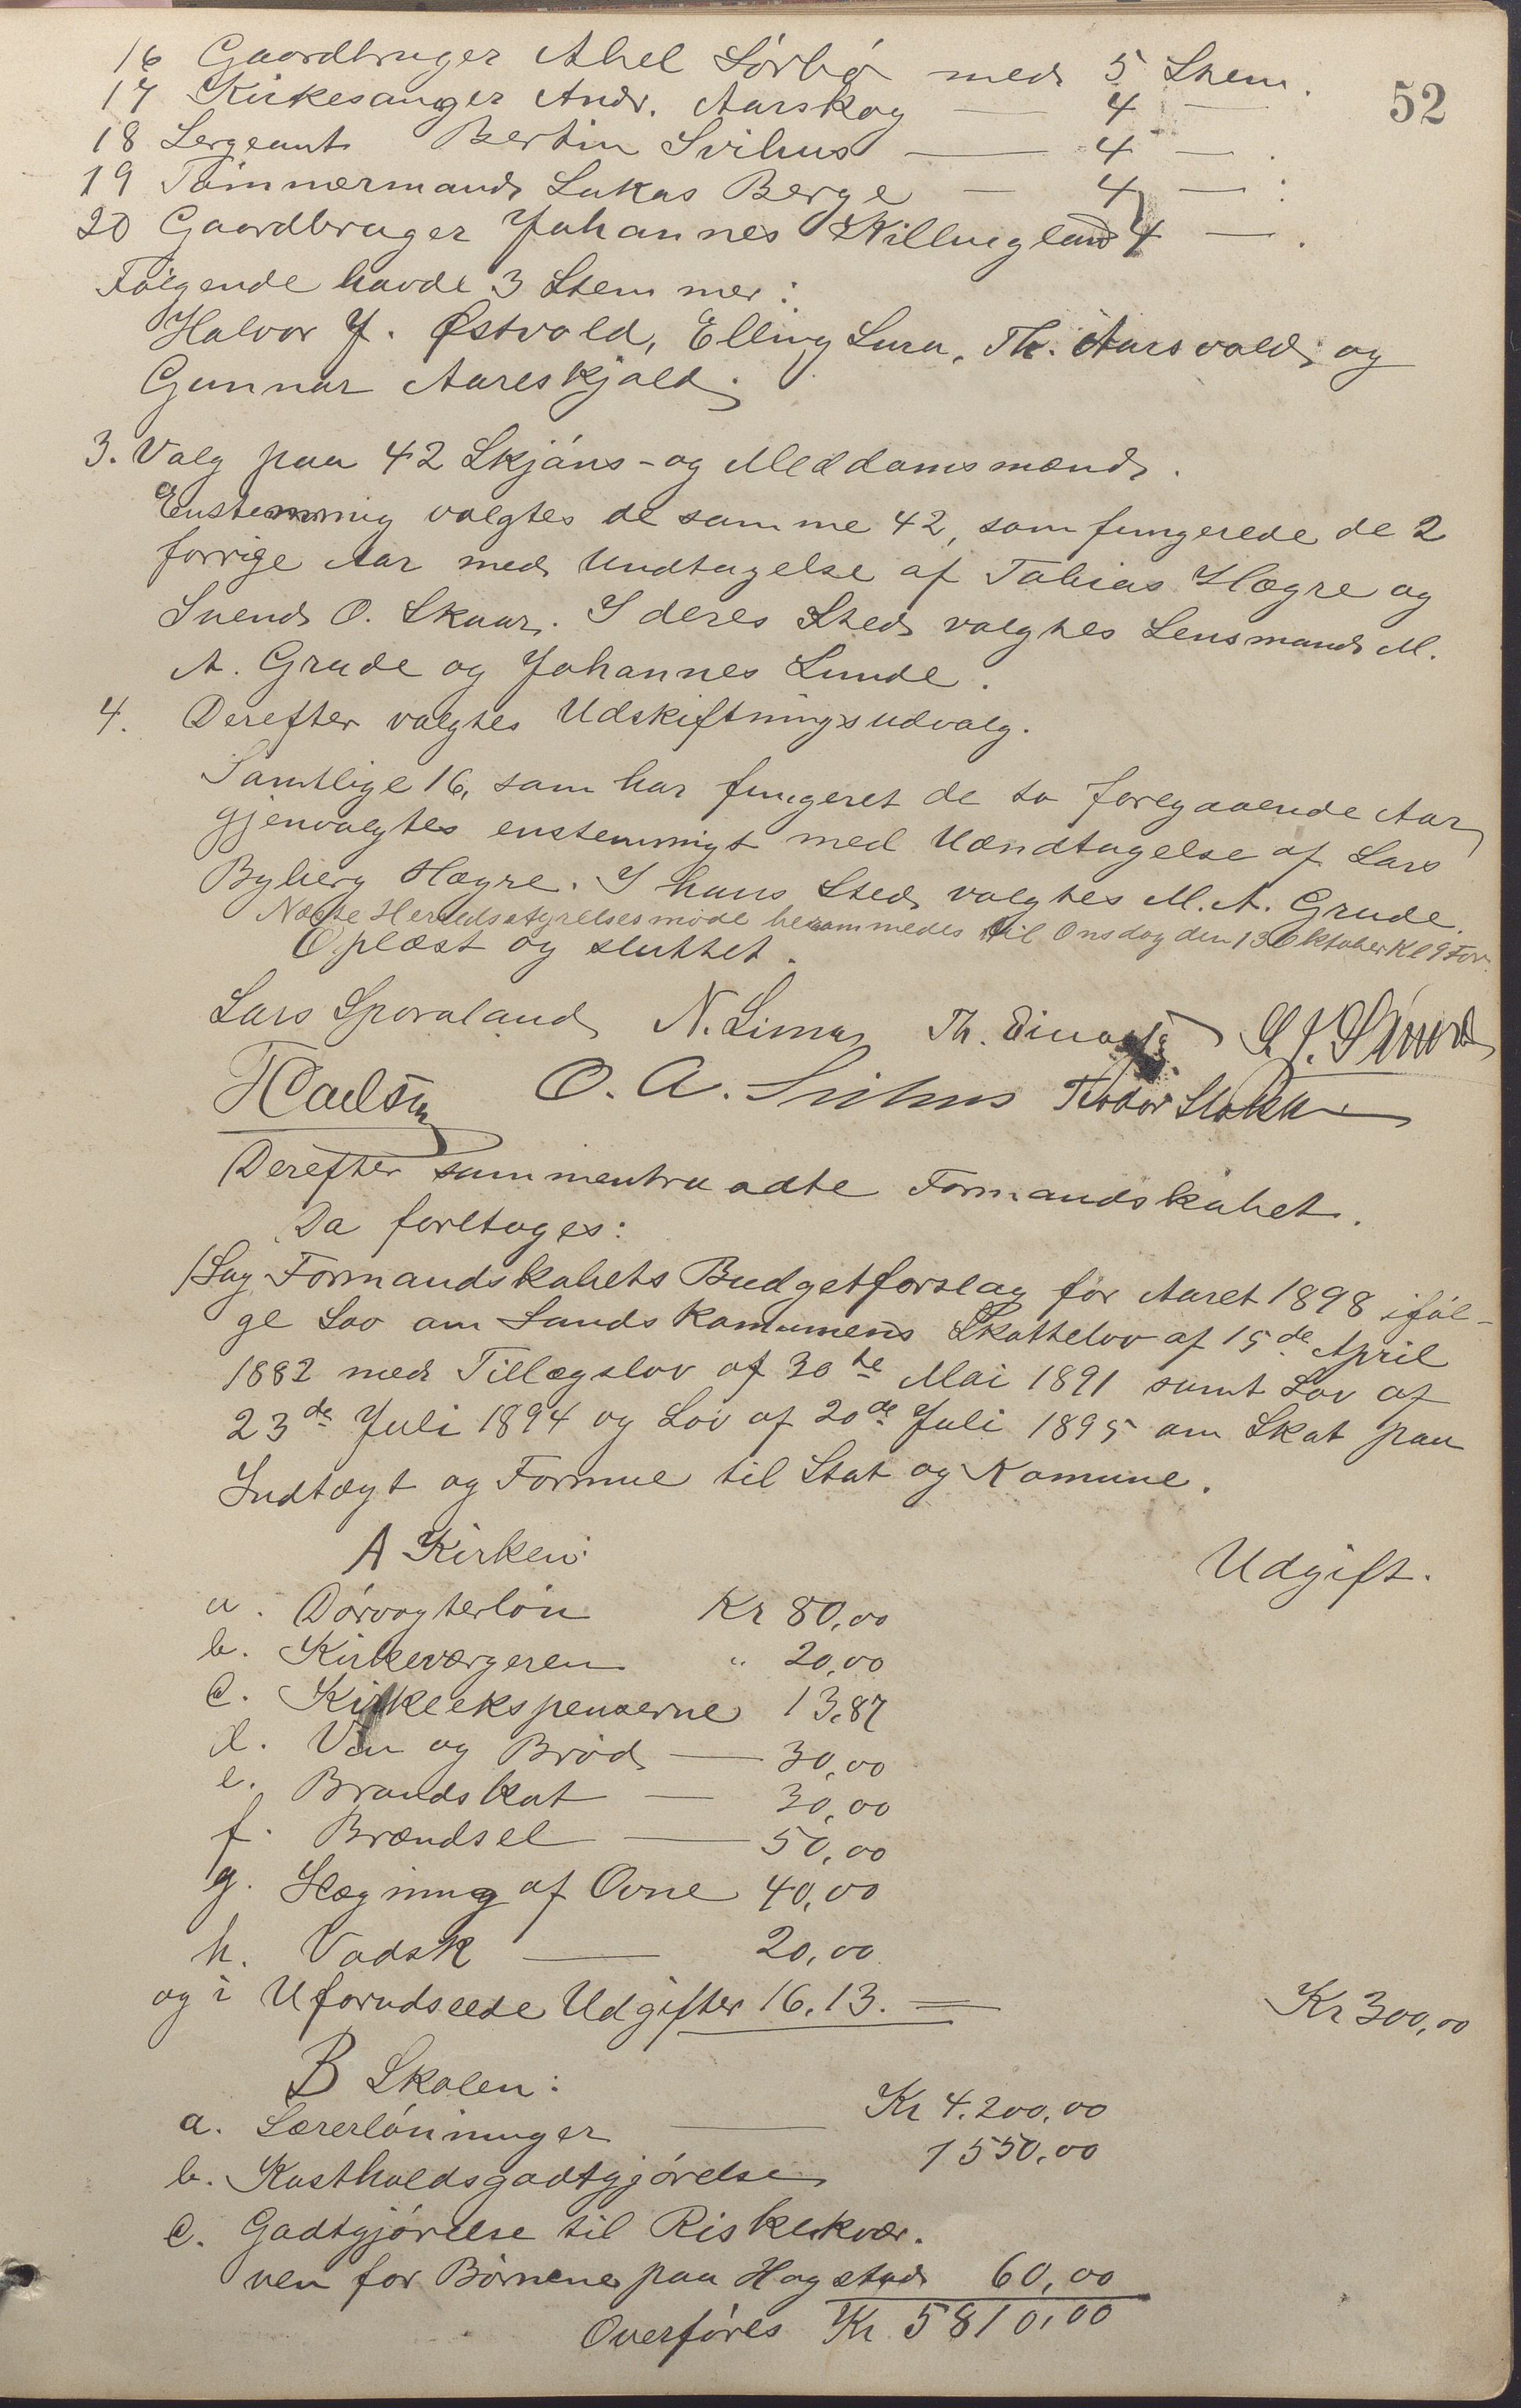 52
16 Gaardbruger Abel Sørbø med 5 Stem.
17 Kirkesanger Andr. Aarskog — 4 —
18 Sergeant Bertin Svihus — 4 — .
19 Tømmermand Lukas Berge — 4 — :
20 Gaardbruger Johannes Skillingland 4 — .
Følgende havde 3 Stemmer:
Halvor J. Østvold, Elling Lura, Th. Aarsvold og
Gunnar Aareskjold.
3. Valg paa 42 Skjøns- og Meddomsmænd.
Enstemmig valgtes de samme 42, som fungerede de 2
forrige Aar med Undtagelse af Tobias Høgre og
Svend O. Skaar. I deres Sted valgtes Lensmand M.
A. Grude og Johannes Lunde.
4. Derefter valgtes Udskiftningsudvalg.
Samtlige 16, som har fungeret de to foregaaende Aar
gjenvalgtes enstemmigt med Uændtagelse af Lars
Byberg Høgre. I hans Sted valgtes M. A. Grude.
Næste Herredsstyrelsesmøde berammedes til Onsdag den 13 Oktober Kl 9 For.
Oplæst og sluttet.
Lars Sporaland N. Lima Th.
O. A. Svihus Thodor Stokka
Derefter sammentraadte Formandskabet.
Da foretoges:
1/ Sag Formandskabets Budgetforslag for Aaret 1898 iføl-
ge Lov om Landskommunens Skattelov af 15de April
1882 med Tillægslov af 30te Mai 1891 samt Lov af
23de Juli 1894 og Lov af 20de Juli 1895 om Skat paa
Indtægt og Formue til Stat og Komune.
A Kirken: Udgift.
a. Dørvogterløn Kr 80,00
b. Kirkeværgeren " 20,00
c. Kirkeekspenserne 13,87
d. Vin og Brød — 30,00
e. Brandskat — 30,00
f. Brændsel — 50,00
g. Lægning af Ovne 40,00
h. Vadsk — 20,00
og i Uforudseede Udgifter 16.13. = Kr 300,00
B Skolen:
a. Lærerlønninger — Kr 4.200,00
b. Kostholdsgodtgjørelse 1550,00
c. Godtgjørelse til Riskekvær.
ven for Børnene paa Hogstad 60,00
Overføres Kr 5810,00